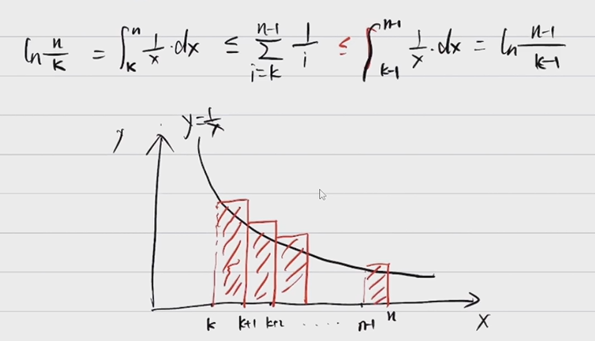 ln n/k = ∫_k^n 1/x · dx ≤ ∑_{i=k}^{n-1} 1/i ≤ ∫_{k-1}^{n-1} 1/x · dx = ln (n-1)/(k-1)
y y=1/x
k k+1 k+2 . . . . . n-1 n x